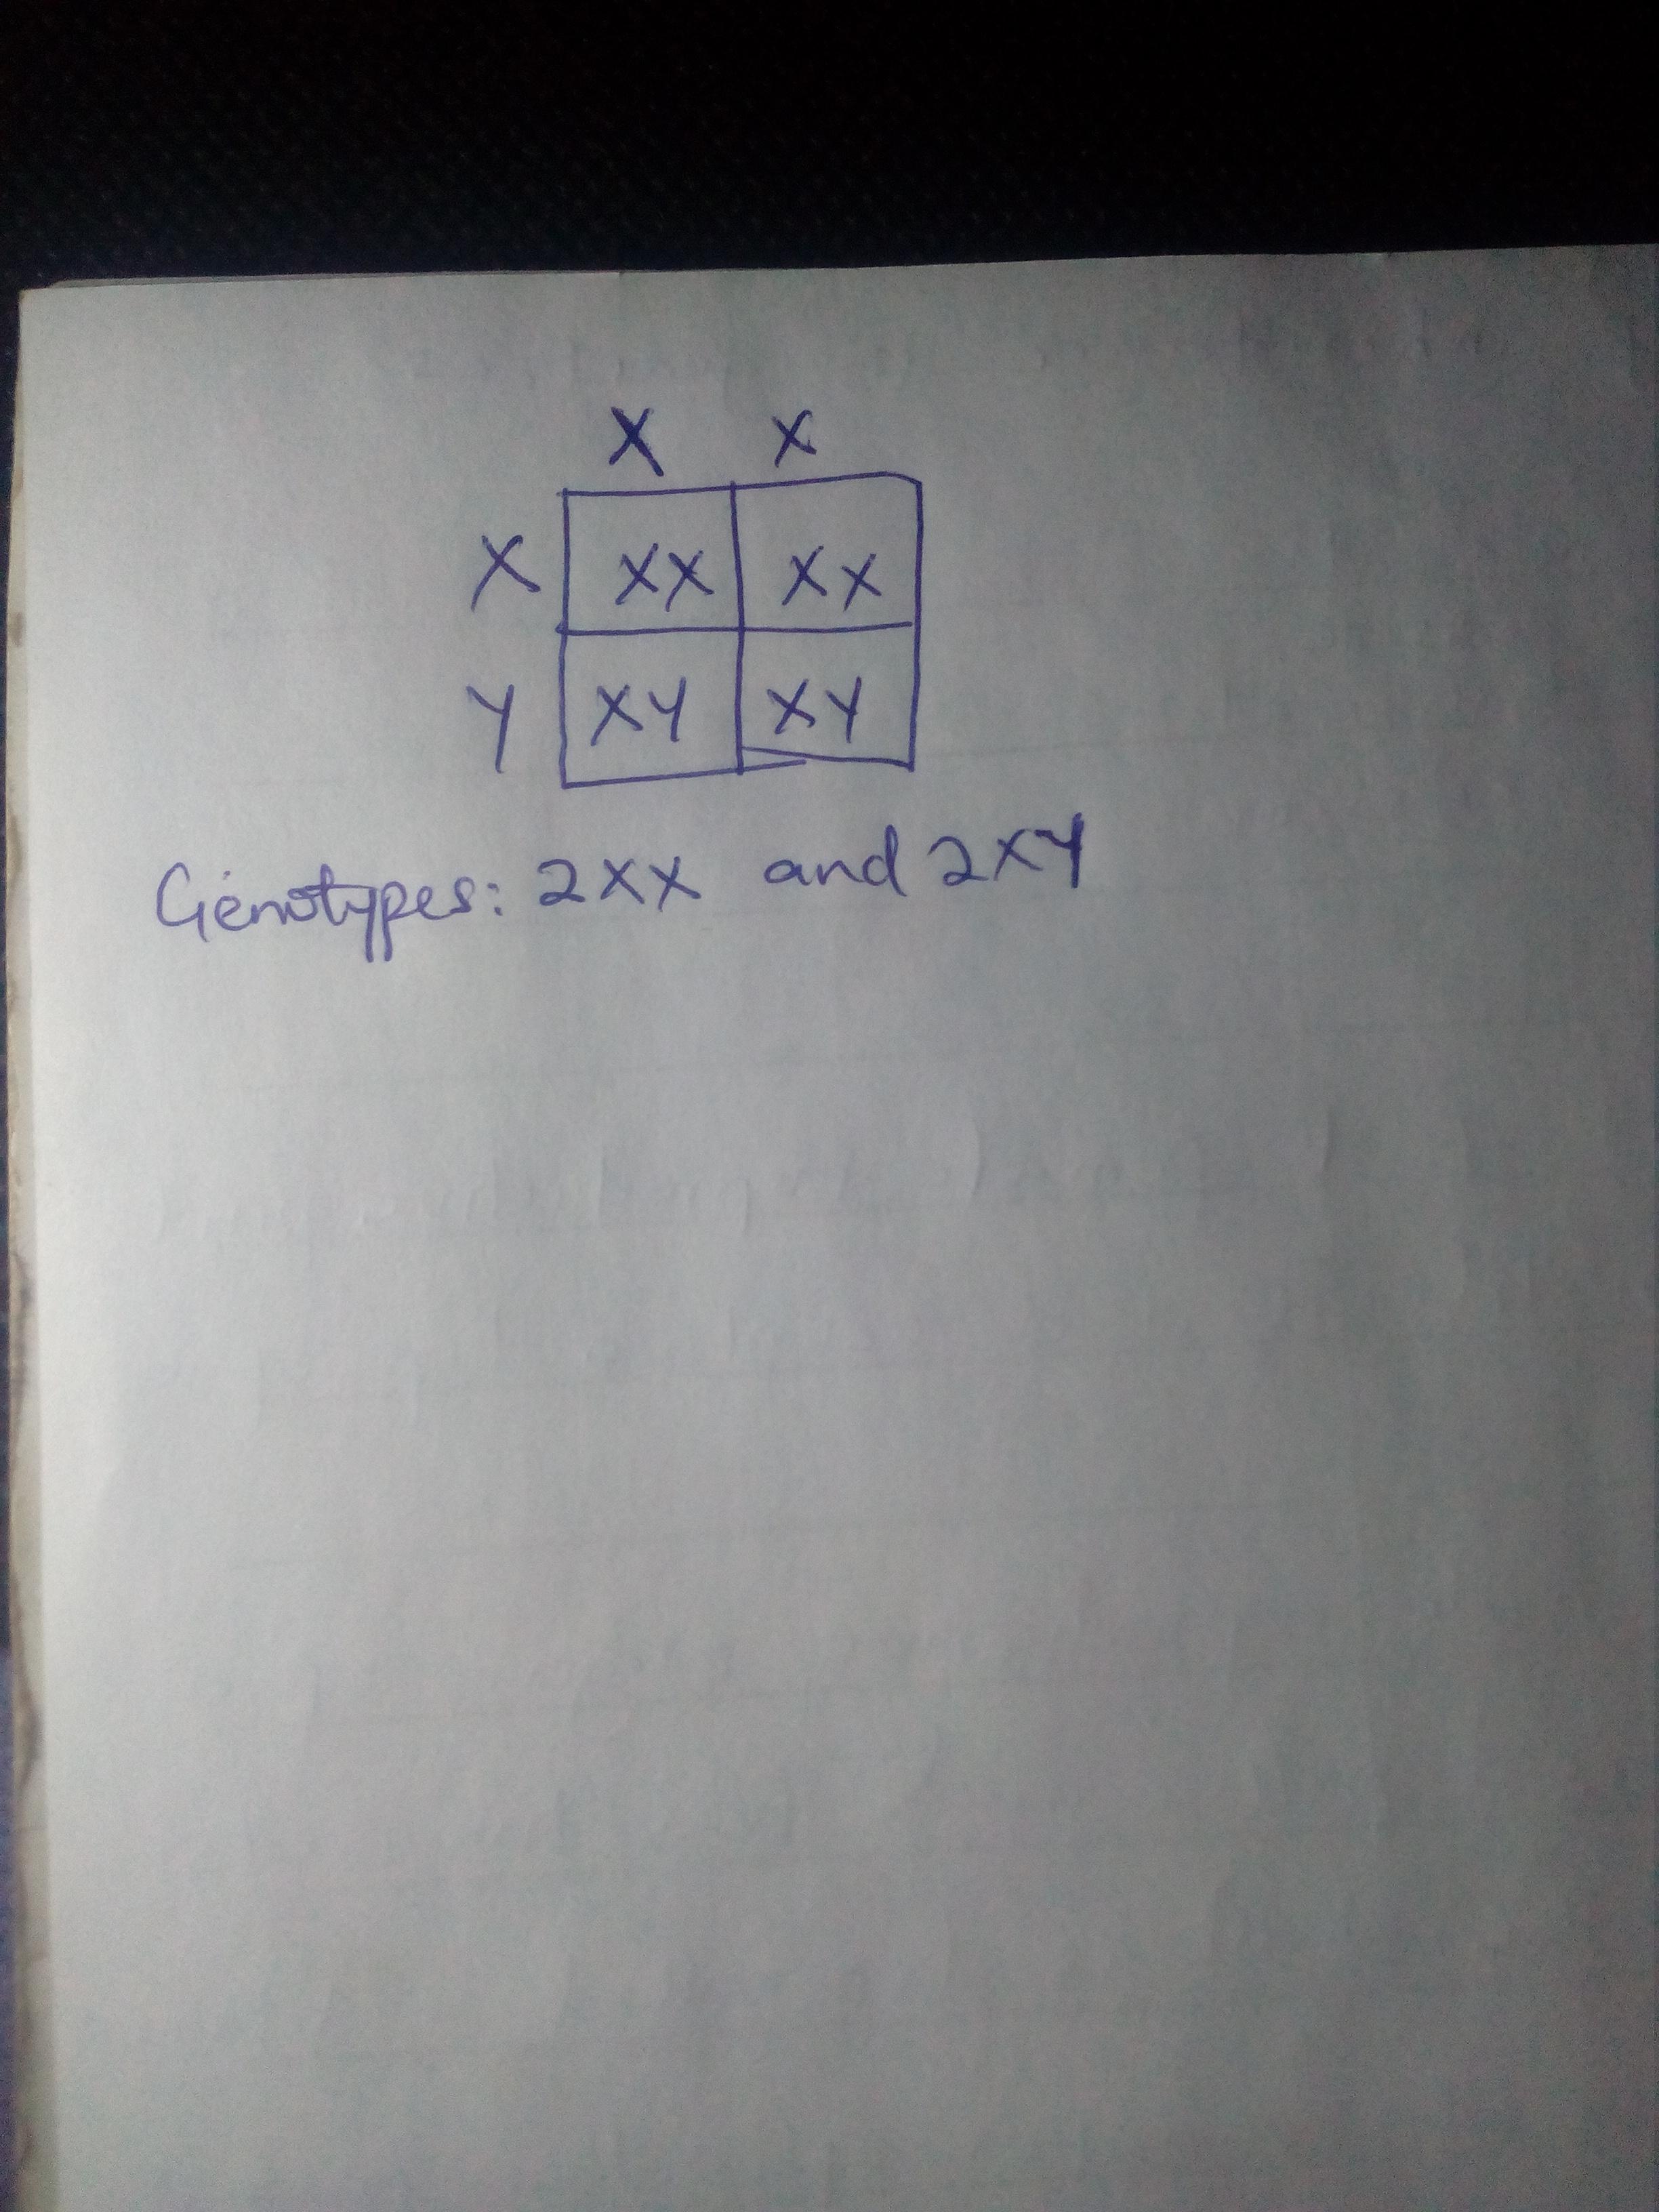 X X
X XX XX
Y XY XY
Genotypes: 2XX and 2XY